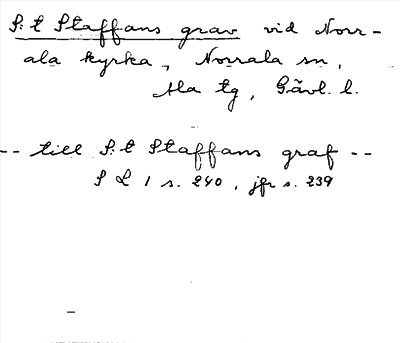 S:t Staffans grav vid Norr-
ala kyrka, Norrala sn,
Ala tg, Gävl. l.
-- till S:t Staffans graf --
S L 1 s. 240, jfr s. 239